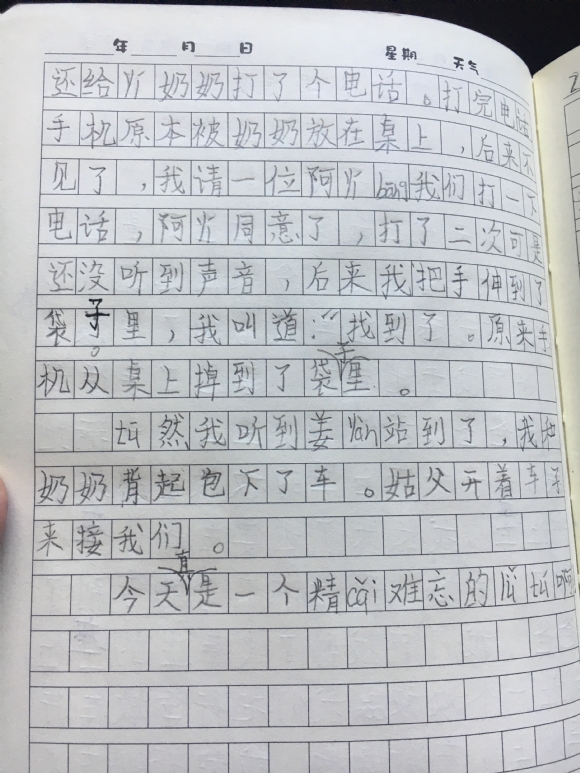 年 月 日 星期 天气
还给爷奶奶打了个电话。打完电话
手机原本被奶奶放在桌上，后来不
见了，我请一位阿爷bāng我们打一下
电话，阿爷同意了，打了二次可是
还没听到声音，后来我把手伸到了
袋子里，我叫道：“找到了。原来手
机从桌上掉到了袋子里。
tū然我听到姜yàn站到了，我把
奶奶背起包下了车。姑父开着车子
来接我们。
今天真是一个精cǎi难忘的lǚ tú啊